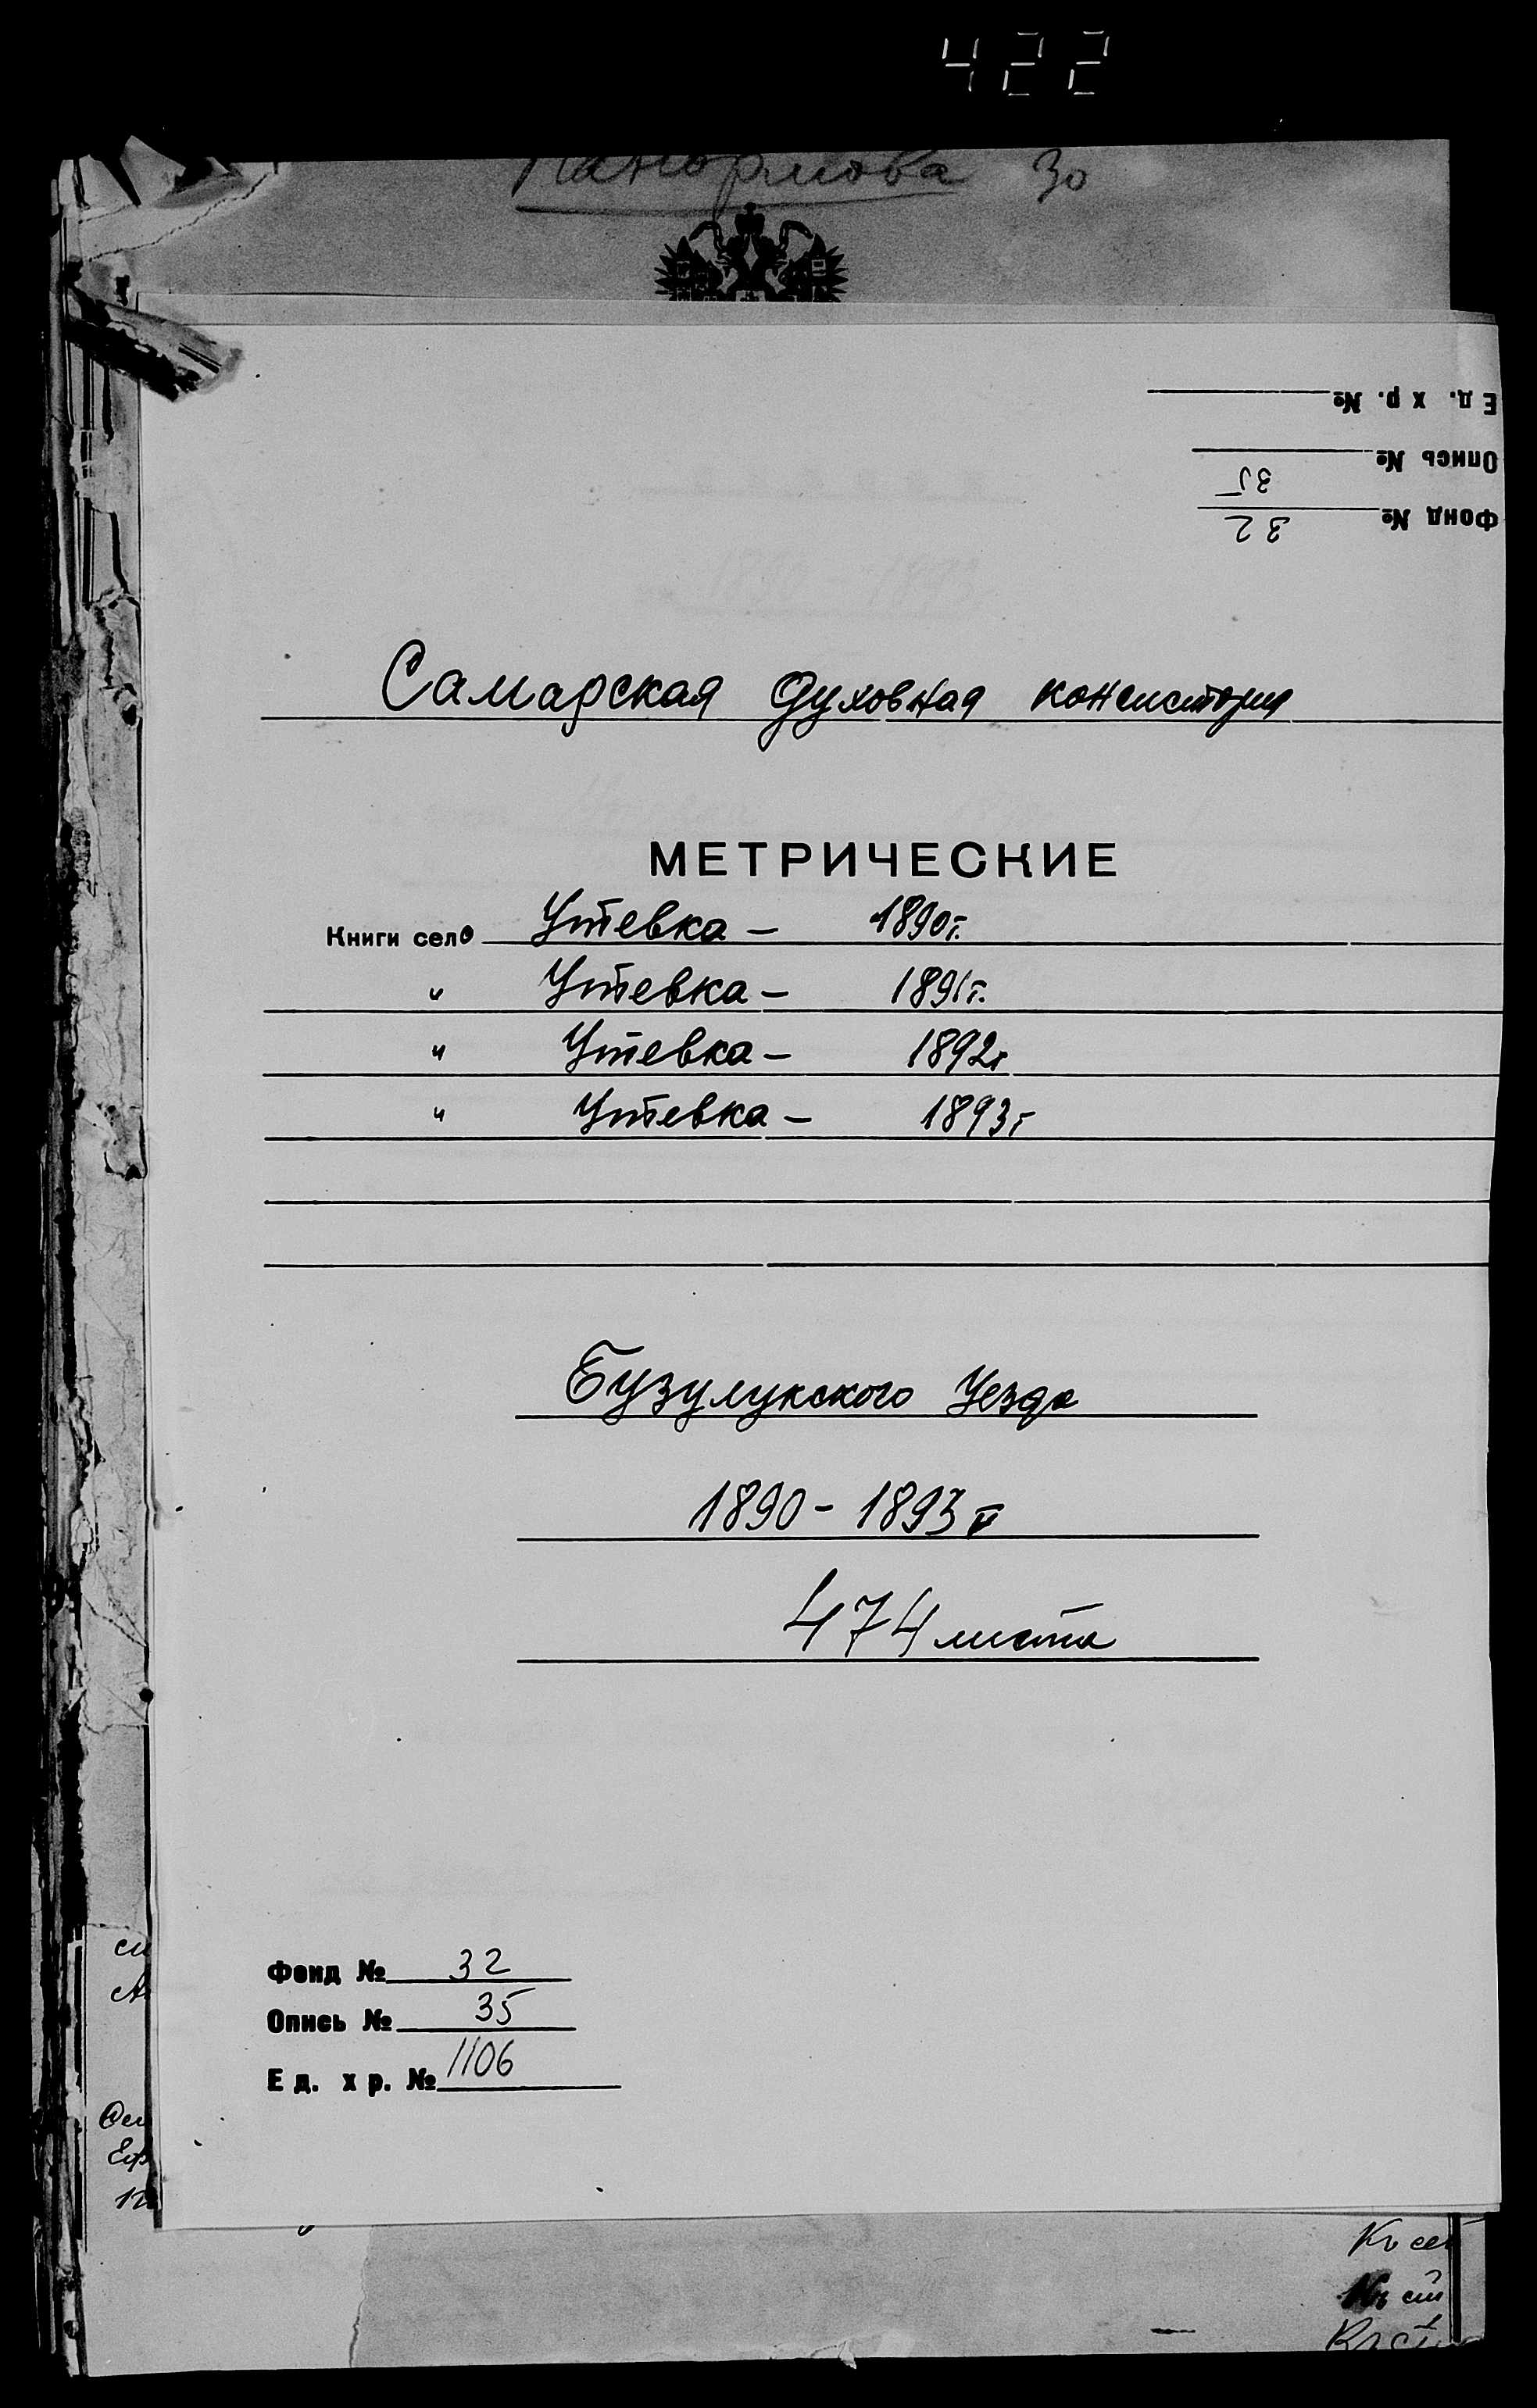 422
30
Ед. хр. №
Опись № 35
Фонд № 32
Самарская духовная консистория
МЕТРИЧЕСКИЕ
Книги село Утевка — 1890г.
" Утевка — 1891г.
" Утевка — 1892г
" Утевка — 1893г
Бузулукского Уезда
1890 - 1893 г
474 листа
Фонд № 32
Опись № 35
Ед. хр. № 1106